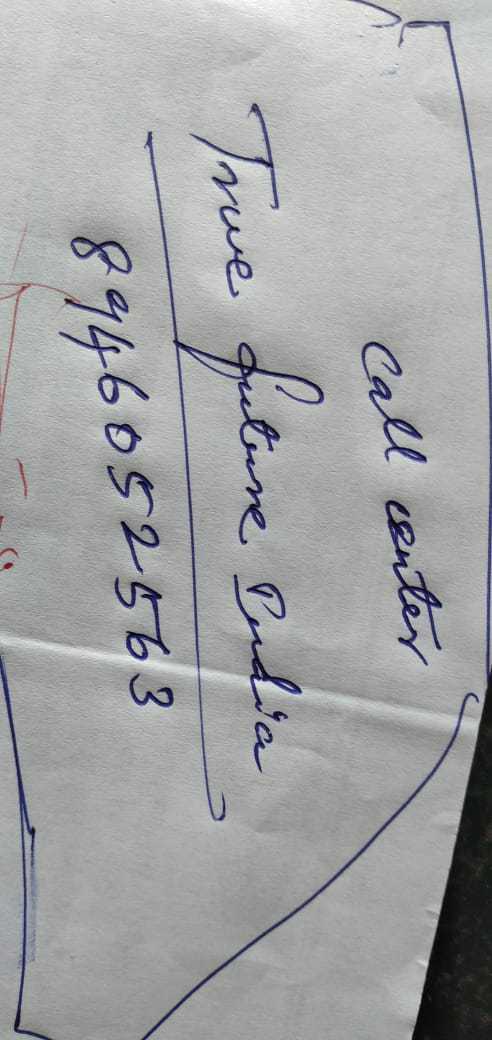 Call center
True future India
8946052563